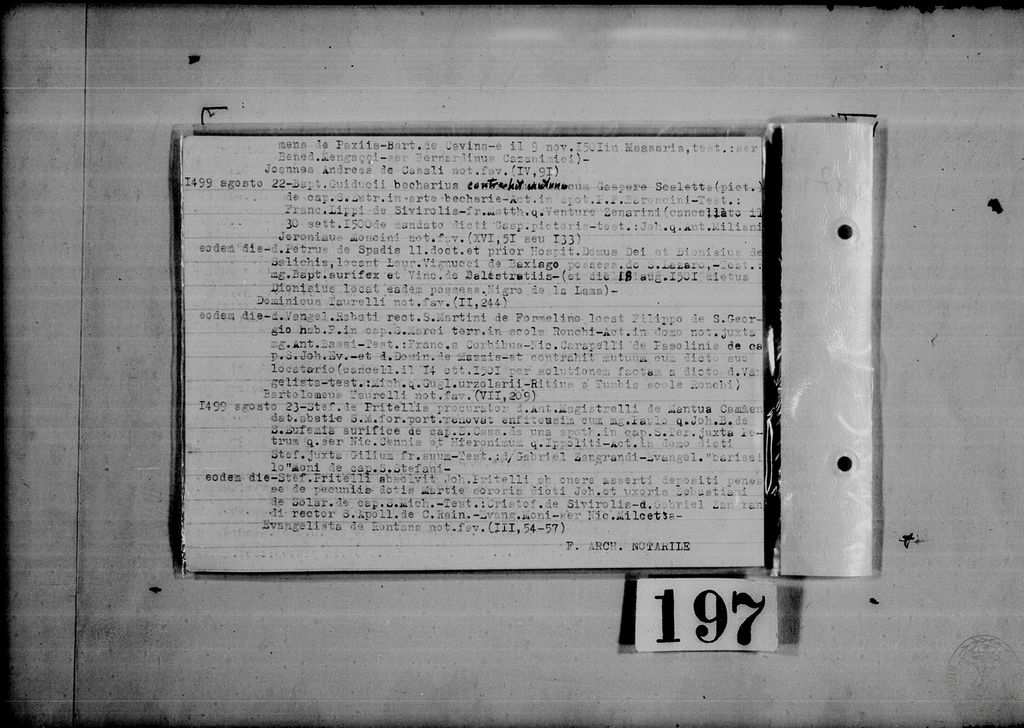 mens de Paxiis-Bart.de Cavina-e il 9 nov.I50Iin Massaria,test.:ser
Bened.Mengacci-ser Bernardinus Cazanimici)-
Joannes Andreas de Casali not.fav.(IV,9I)
I499 agosto 22-Bapt.Guiducii becharius contrahit mutuum cum Gaspare Scaletta(pict.)
de cap.S.Eutr.in arte becharie-Act.in apot.F.F.Baroncini-Test.:
Franc.Lippi de Sivirolis-fr.Matth.q.Venture Zenarini(cancellato il
30 sett.I500de mandato dicti Gasp.pictoris-test.:Joh.q.Ant.Miliani
Jeronimus Moncini not.fav.(XVI,5I seu I33)
eodem die-d.Petrus de Spadis ll.doct.et prior Hospit.Domus Dei et Dionisius de
Salichis,locant Laur.Vignucci de Baxiago possess.de S.Lazaro,-Test.:
mg.Bapt.aurifex et Vinc.de Balestratiis-(et die 18 aug.I50I dictus
Dionisius locat eadem possess.Nigro de la Lama)-
Dominicus Taurelli not.fav.(II,244)
eodem die-d.Vangel.Rabati rect.S.Martini de Formelino locat Filippo de S.Geor-
gio hab.F.in cap.S.Marci terr.in scola Ronchi-Act.in domo not.juxta
mg.Ant.Bassi-Test.:Franc.a Corbibus-Nic.Carapelli de Pasolinis de ca
p.S.Joh.Ev.-et d.Domin.de Mazzis-et contrahit mutuum cum dicto suo
locatario(cancell.il I4 ott.I50I per solutionem factam a dicto d.Van
gelista-test.:Mich.q.Gugl.urzolarii-Ritius a Tumbis scole Ronchi)
Bartolomeus Taurelli not.fav.(VII,209)
I499 agosto 23-Stef.de Fritellis procurator d.Ant.Magistrelli de Mantua Cammen
dat.abatie S.M.for.port.renovat enfiteusim cum mg.Paulo q.Joh.B.de
S.Eufemia aurifice de cap.S.Cass.de una apoth.in cap.S.Ter.juxta Pe-
trum q.ser Nic.Cennis et Hieronimum q.Ippoliti-Act.in domo dicti
Stef.juxta Gilium fr.suum-Test.:d/Gabriel Zangrandi-Evangel."barisel
lo"Moni de cap.S.Stefani-
eodem die-Stef.Fritelli absolvit Joh.Fritelli ab onere asserti depositi penes
se de pecuniis dotis Martie sororis dicti Joh.et uxoris Sebastiani
de Solar.de cap.S.Mich.-Test.:Cristof.de Sivirolis-d.Gabriel Zangran
di rector S.Apoll.de C.Rain.-Evang.Moni-ser Nic.Milcetta-
Evangelista de Rontana not.fav.(III,54-57)
F. ARCH. NOTARILE
197